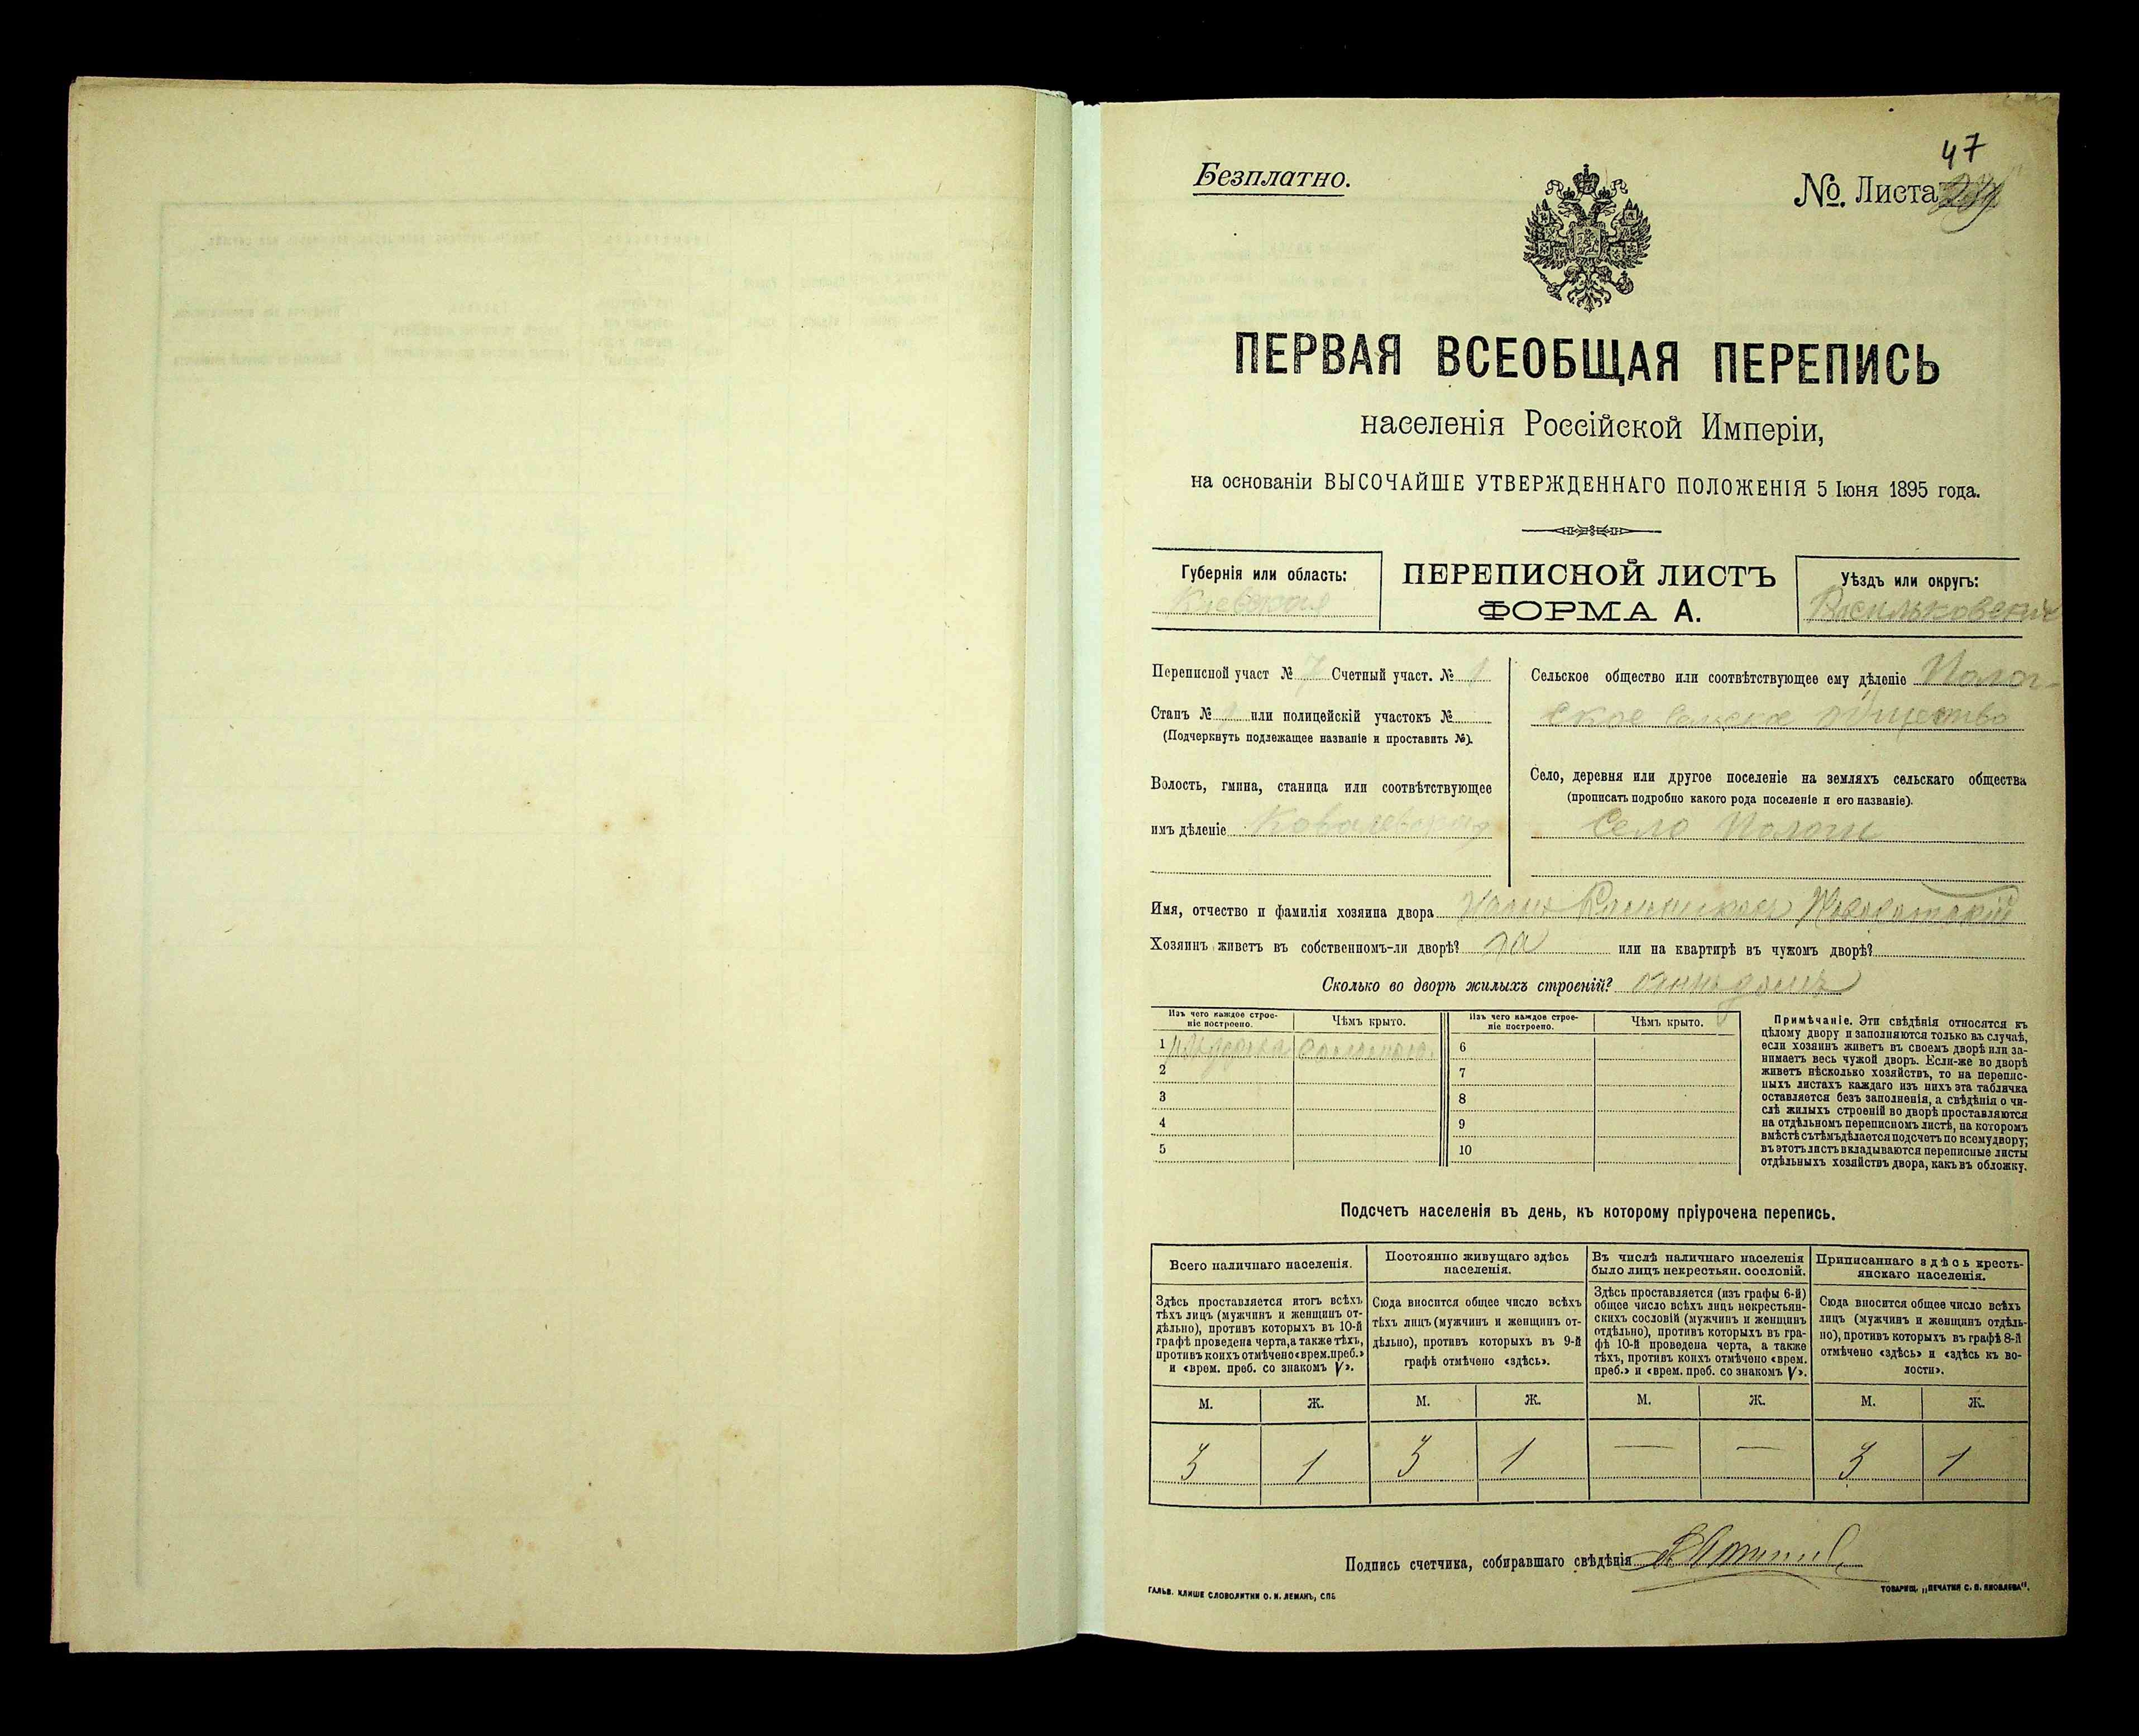 47
Безплатно.
№. Листа
ПЕРВАЯ ВСЕОБЩАЯ ПЕРЕПИСЬ
населенія Россійской Имперіи,
на основаніи ВЫСОЧАЙШЕ УТВЕРЖДЕННАГО ПОЛОЖЕНІЯ 5 Іюня 1895 года.
Губернія или область:
Киевская
ПЕРЕПИСНОЙ ЛИСТЪ
ФОРМА А.
Уѣздъ или округъ:
Васильковский
Переписной участ № 7 Счетный участ. № 1
Станъ № или полицейскій участокъ №
(Подчеркнуть подлежащее названіе и проставить №).
Волость, гмина, станица или соотвѣтствующее
имъ дѣленіе Ковалевская
Сельское общество или соотвѣтствующее ему дѣленіе Полог-
ское сельское общество
Село, деревня или другое поселеніе на земляхъ сельскаго общества
(прописать подробно какого рода поселеніе и его названіе).
Село Пологи
Имя, отчество и фамилія хозяина двора
Хозяинъ живетъ въ собственномъ-ли дворѣ? да или на квартирѣ въ чужомъ дворѣ?
Сколько во дворѣ жилыхъ строеній? одинъ домъ
Изъ чего каждое строе-
ніе построено.
Чѣмъ крыто.
Изъ чего каждое строе-
ніе построено.
Чѣмъ крыто.
1 соломою
2
3
4
5
6
7
8
9
10
Примѣчаніе. Эти свѣдѣнія относятся къ
цѣлому двору и заполняются только въ случаѣ,
если хозяинъ живетъ въ своемъ дворѣ или за-
нимаетъ весь чужой дворъ. Если-же во дворѣ
живетъ нѣсколько хозяйствъ, то на перепис-
ныхъ листахъ каждаго изъ нихъ эта табличка
оставляется безъ заполненія, а свѣдѣнія о чи-
слѣ жилыхъ строеній во дворѣ проставляются
на отдѣльномъ переписномъ листѣ, на которомъ
вмѣстѣ съ тѣмъ дѣлается подсчетъ по всему двору;
въ этотъ листъ вкладываются переписные листы
отдѣльныхъ хозяйствъ двора, какъ въ обложку.
Подсчетъ населенія въ день, къ которому пріурочена перепись.
Всего наличнаго населенія.
Здѣсь проставляется итогъ всѣхъ
тѣхъ лицъ (мужчинъ и женщинъ от-
дѣльно), противъ которыхъ въ 10-й
графѣ проведена черта, а также тѣхъ,
противъ коихъ отмѣчено «врем. преб.»
и «врем. преб. со знакомъ V».
Постоянно живущаго здѣсь
населенія.
Сюда вносится общее число всѣхъ
тѣхъ лицъ (мужчинъ и женщинъ от-
дѣльно), противъ которыхъ въ 9-й
графѣ отмѣчено «здѣсь».
Въ числѣ наличнаго населенія
было лицъ некрестьян. сословій.
Здѣсь проставляется (изъ графы 6-й)
общее число всѣхъ лицъ некрестьян-
скихъ сословій (мужчинъ и женщинъ
отдѣльно), противъ которыхъ въ гра-
фѣ 10-й проведена черта, а также
тѣхъ, противъ коихъ отмѣчено «врем.
преб.» и «врем. преб. со знакомъ V».
Приписаннаго здѣсь кресть-
янскаго населенія.
Сюда вносится общее число всѣхъ
лицъ (мужчинъ и женщинъ отдѣль-
но), противъ которыхъ въ графѣ 8-й
отмѣчено «здѣсь» и «здѣсь къ во-
лости».
М. Ж. М. Ж. М. Ж. М. Ж.
3 1 3 1 — — 3 1
Подпись счетчика, собиравшаго свѣдѣнія
ГАЛЬВ. КЛИШЕ СЛОВОЛИТНИ О. И. ЛЕМАНЪ, СПБ
ТОВАРИЩ. „ПЕЧАТНЯ С. П. ЯКОВЛЕВА“.